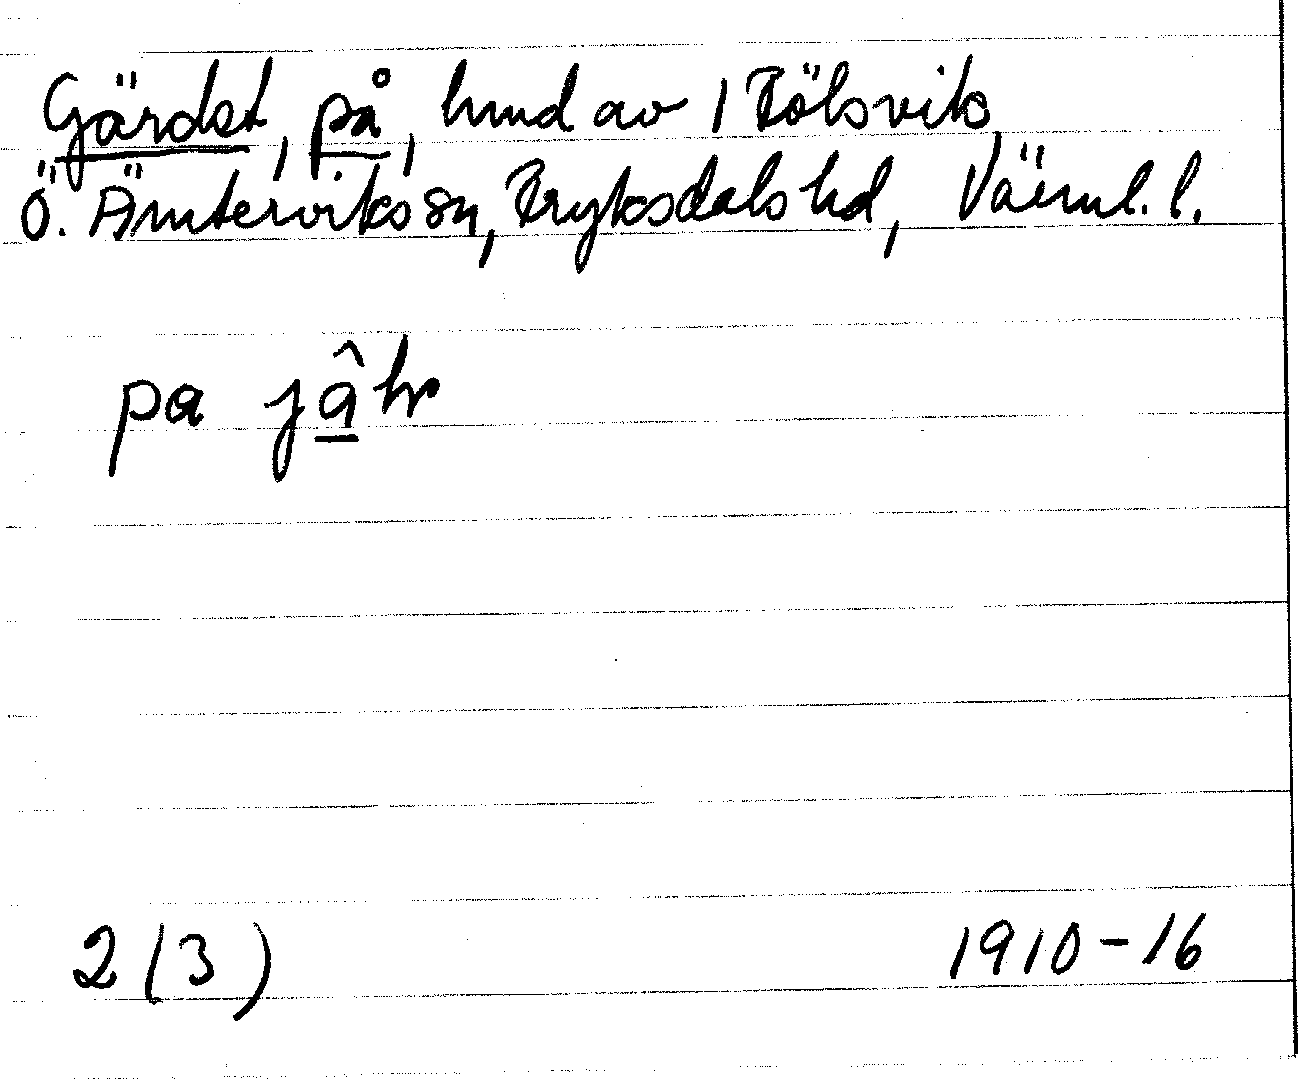 Gärdet, på, hmd av 1 Kölsvik,
Ö. Ämterviks sn, Fryksdals hd, Värml. l.
pa
2(3) 1910-16